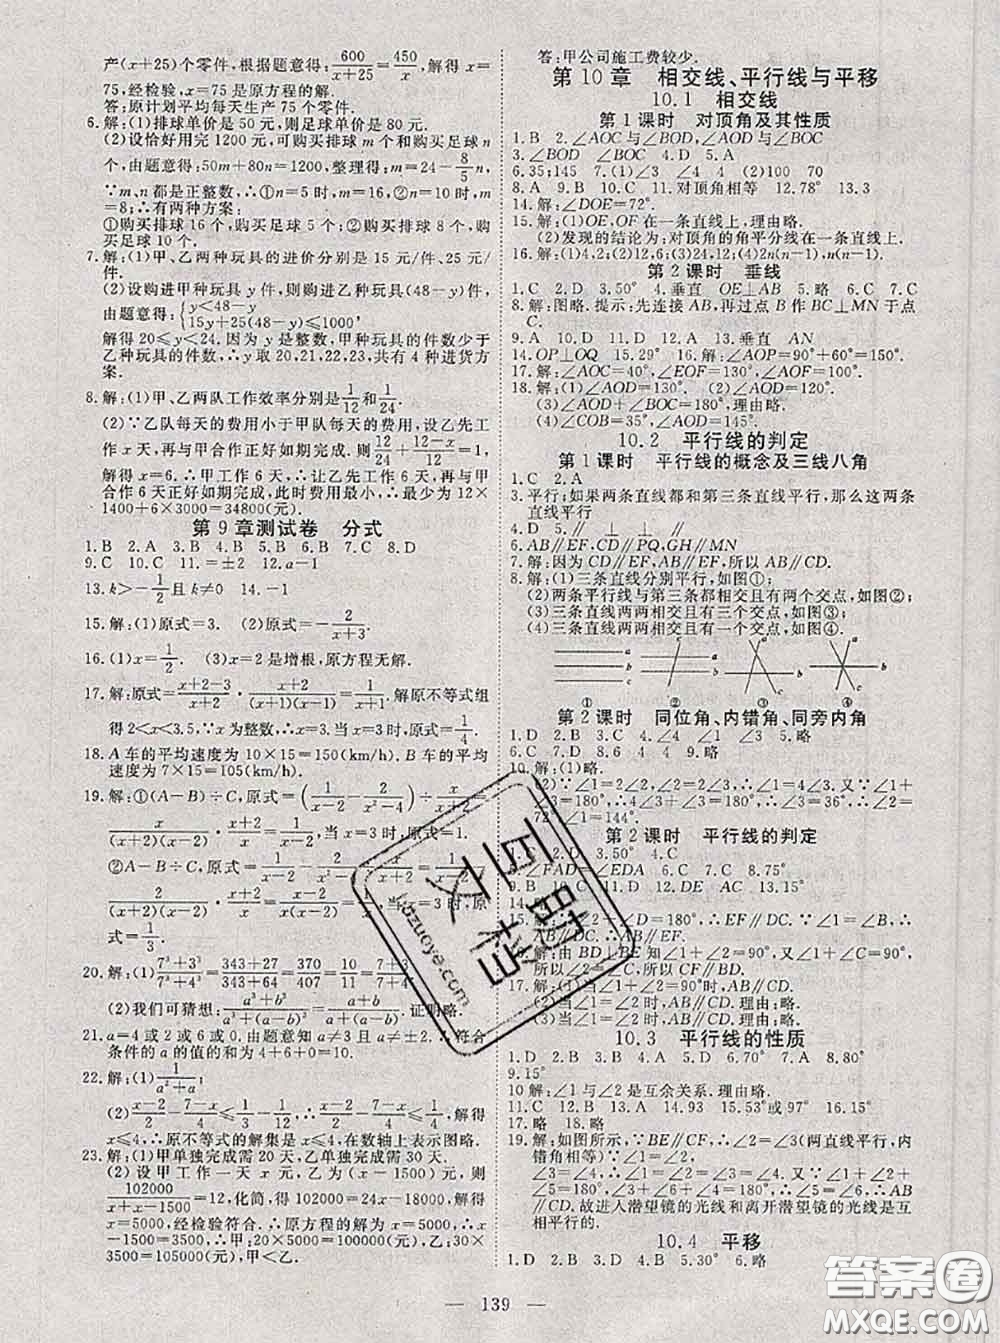 产(x+25)个零件,根据题意得:600/(x+25)=450/x,解得 x=
75,经检验,x=75 是原方程的解.
答:原计划平均每天生产 75 个零件.
6.解:(1)排球单价是 50 元,则足球单价是 80 元.
(2)设恰好用完 1200 元,可购买排球 m 个和购买足球 n
个,由题意得:50m+80n=1200,整理得:m=24-8/5n,
∵m、n 都是正整数,∴①n=5 时,m=16,②n=10 时,m
=8;∴有两种方案:
①购买排球 16 个,购买足球 5 个;②购买排球 8 个,购
买足球 10 个.
7.解:(1)甲、乙两种玩具的进价分别是 15 元/件、25 元/
件.
(2)设购进甲种玩具 y 件,则购进乙种玩具(48-y)件,
由题意得:{y<48-y
15y+25(48-y)≤1000,
解得 20≤y<24.因为 y 是整数,甲种玩具的件数少于
乙种玩具的件数,∴y 取 20,21,22,23,共有 4 种进货方
案.
8.解:(1)甲、乙两队工作效率分别是1/12和1/24.
(2)∵乙队每天的费用小于甲队每天的费用,设乙先工
作 x 天,再与甲合作正好如期完成,则12/24+(12-x)/12=1,
解得 x=6.∴甲工作 6 天,∴让乙先工作 6 天,再与甲
合作 6 天正好如期完成,此时费用最小,最少为 12×
1400+6×3000=34800(元).
第 9 章测试卷 分式
1.B 2.A 3.B 4.B 5.B 6.C 7.C 8.D
9.C 10.C 11.=±2 12.a-1
13.k>-1/2且 k≠0 14.-1
15.解:(1)原式=3. (2)原式=-2/(x+3).
16.(1)x=1/2. (3)x=2 是增根,原方程无解.
17.解:原式=(x+2-3)/(x+2)·(x+2)/((x+1)(x-1))=1/(x+1).解原不等式组
得 2<x<3.5,∵x 为整数,∴x=3.当 x=3 时,原式=1/4.
18.A 车的平均速度为 10×15=150(km/h).B 车的平均
速度为 7×15=105(km/h).
19.解:①(A-B)÷C,原式=(1/(x-2)-2/(x²-4))÷x/(x+2)=
x/((x+2)(x-2))·(x+2)/x=1/(x-2),当 x=3 时,原式=1.
②A-B÷C,原式=1/(x-2)-
2/((x+2)(x-2))·(x+2)/x 当 x=3 时,原
式=1/3.
20.解:(1)(7³+3³)/(7³+4³)=(343+27)/(343+64)=370/407=10/11=(7+3)/(7+4)
(2)我们可猜想:(a³+b³)/(a³+(a-b)³)=(a+b)/(a+(a-b)).证明略.
21.a=4 或 2 或 6 或 0,由题意知 a≠0 且 a≠±2.∴符合
条件的 a 的值的和为 4+6+0=10.
22.解:(1)1/(a²+a)
(2)(x-2)/2-(7-x)/4≤1/3-1/12 ∴(x-2)/2-(7-x)/4≤1/4,∴
x≤4,∴原不等式的解集是 x≤4,在数轴上表示图略.
23.解:(1)甲单独完成需 20 天,乙单独完成需 30 天.
(2)设甲工作一天 x 元,乙为(x-1500)元,则
102000/(x+x-1500)=12,化简,得 102000=24x-18000,解得
x=5000,经检验符合.∴原方程的解为 x=5000,∴x-
1500=3500(元),甲:20×5000=100000(元),乙:30×
3500=105000(元),甲<乙.
答:甲公司施工费较少.
第 10 章 相交线、平行线与平移
10.1 相交线
第 1 课时 对顶角及其性质
1.B 2.∠AOC 与∠BOD,∠AOD 与∠BOC
3.∠BOD ∠BOC 4.D 5.A
6.35;145 7.(1)∠3 ∠4 (2)100 70
8.A 9.B 10.C 11.对顶角相等 12.78° 13.3
14.解:∠DOE=72°.
15.解:(1)OE,OF 在一条直线上,理由略.
(2)发现的结论为:对顶角的角平分线在一条直线上.
16.(1)4,2;(2)6,3;(3)12,6;(4)2n(n-1),n(n-1)
第 2 课时 垂线
1.C 2.D 3.50° 4.垂直 OE⊥AB 5.C 6.C 7.C
8.解:图略.提示:先连接 AB,再过点 B 作 BC⊥MN 于点
C.
9.D 10.C 11.D 12.A 13.垂直 AN
14.OP⊥OQ 15.29° 16.解:∠AOP=90°+60°=150°.
17.解:∠AOC=40°,∠EOF=130°,∠AOF=100°.
18.解:(1)∠AOD=130°. (2)∠AOD=120°.
(3)∠AOD+∠BOC=180°,理由略.
(4)∠COB=35°,∠AOD=145°.
10.2 平行线的判定
第 1 课时 平行线的概念及三线八角
1.C 2.A
3.平行;如果两条直线都和第三条直线平行,那么这两条
直线平行
4.D
6.AB∥EF,CD∥PQ,GH∥MN
7.解:因为 CD∥EF,AB∥EF,所以 AB∥CD.
8.解:(1)三条直线分别平行,如图①;
(2)两条平行线与第三条都相交且有两个交点,如图②;
(3)三条直线两两相交且有三个交点,如图③;
(4)三条直线两两相交且有一个交点,如图④.
① ② ③ ④
第 2 课时 同位角、内错角、同旁内角
1.D 2.B 3.C 4.∠4 ∠1 ∠2 5.略
6.C 7.D 8.6 4 4 9.略
10.解:(1)略.
(2)∵∠1=2∠2,∠2=2∠3,∴∠1=4∠3.又∵∠1+
∠3=180°,∴4∠3+∠3=180°,∴∠3=36°,∴∠2=
72°,∠1=144°.
第 2 课时 平行线的判定
2.D 3.50° 4.C
5.∠FAD=∠EDA 6.B 7.C 8.75°
11.D 12.DE AC 13.15°
15.解:∵∠2+∠D=180°,∴EF∥DC.∵∠1=∠B,∴EF
16.解:由 BD⊥BE 知∠1+∠2=90°,又∠1+∠C=90°,
所以∠2=∠C,所以 CF∥BD.
17.解:(1)当∠1=∠2 时,AB∥CD.理由:略;
(2)当∠1=∠2 时,AB∥CD.理由:略;
(3)当∠1=∠2 时,AB∥CD.理由:略.
10.3 平行线的性质
1.D 2.B 3.B 4.A 5.D 6.70° 7.A 8.80°
9.15°
10.解:∠1 与∠2 是互余关系.理由略.
11.C 12.B 13.A 14.93 15.53°或 97° 16.15°
17.略 18.略
19.解:如图所示,∵BE∥CF,∴∠2=∠3(两直线平行,内
错角相等)∵∠1=∠2,∠3=∠4,∴∠1=∠2=
∠3=∠4,∴∠1+∠2=∠3+∠4.又∵∠1+∠2+
∠5=180°,∠3+∠4+∠6=180°,∴∠5=∠6,∴AB
∥CD.故进入潜望镜的光线和离开潜望镜的光线是互
相平行的.
10.4 平移
1.D 2.C 3.D 4.B 5.30° 6.略
— 139 —
百文档
Lbzuoye.com
答案圈
MXQE.COM